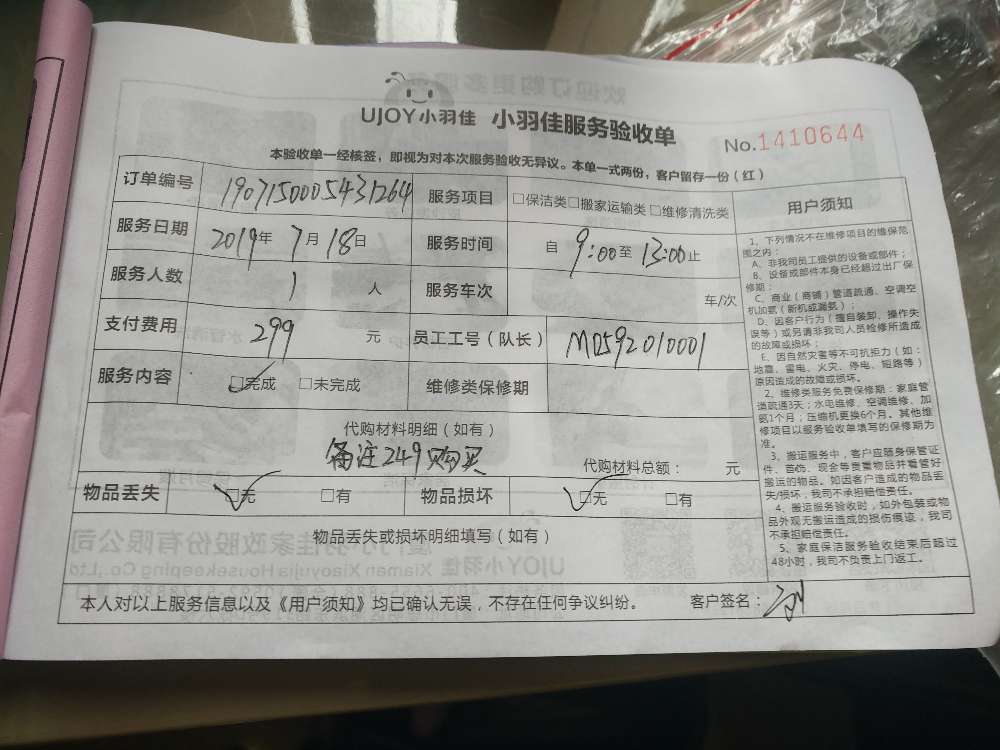 UJOY小羽佳 小羽佳服务验收单
No.1410644
本验收单一经核签，即视为对本次服务验收无异议。本单一式两份，客户留存一份（红）
订单编号 1907150005431264 服务项目 □保洁类□搬家运输类□维修清洗类
服务日期 2019年 7月 18日 服务时间 自 9:00至 13:00止
服务人数 1 人 服务车次 车/次
支付费用 299 元 员工工号（队长） M0592010001
服务内容 □完成 □未完成 维修类保修期
代购材料明细（如有）
备注249购买
代购材料总额： 元
物品丢失 □无 □有 物品损坏 □无 □有
物品丢失或损坏明细填写（如有）
用户须知
1、下列情况不在维修项目的维保范
围之内：
A、非我司员工提供的设备或部件；
B、设备或部件本身已经超过出厂保
修期；
C、商业（商铺）管道疏通、空调空
机加氨（新机或漏氨）；
D、因客户行为（擅自装卸、操作失
误等）或另请非我司人员检修所造成
的故障或损坏；
E、因自然灾害等不可抗拒力（如：
地震、雷电、火灾、停电、短路等）
原因造成的故障或损坏。
2、维修类服务免费保修期：家庭管
道疏通3天；水电维修、空调维修、加
氨1个月；压缩机更换6个月。其他维
修项目以服务验收单填写的保修期为
准。
3、搬运服务中，客户应随身保管证
件、首饰、现金等贵重物品并看管好
搬运的物品。如因客户造成的物品丢
失/损坏，我司不承担赔偿责任。
4、搬运服务验收时，如外包装或物
品外观无搬运造成的损伤痕迹，我司
不承担赔偿责任。
5、家庭保洁服务验收结束后超过
48小时，我司不负责上门返工。
本人对以上服务信息以及《用户须知》均已确认无误，不存在任何争议纠纷。 客户签名：